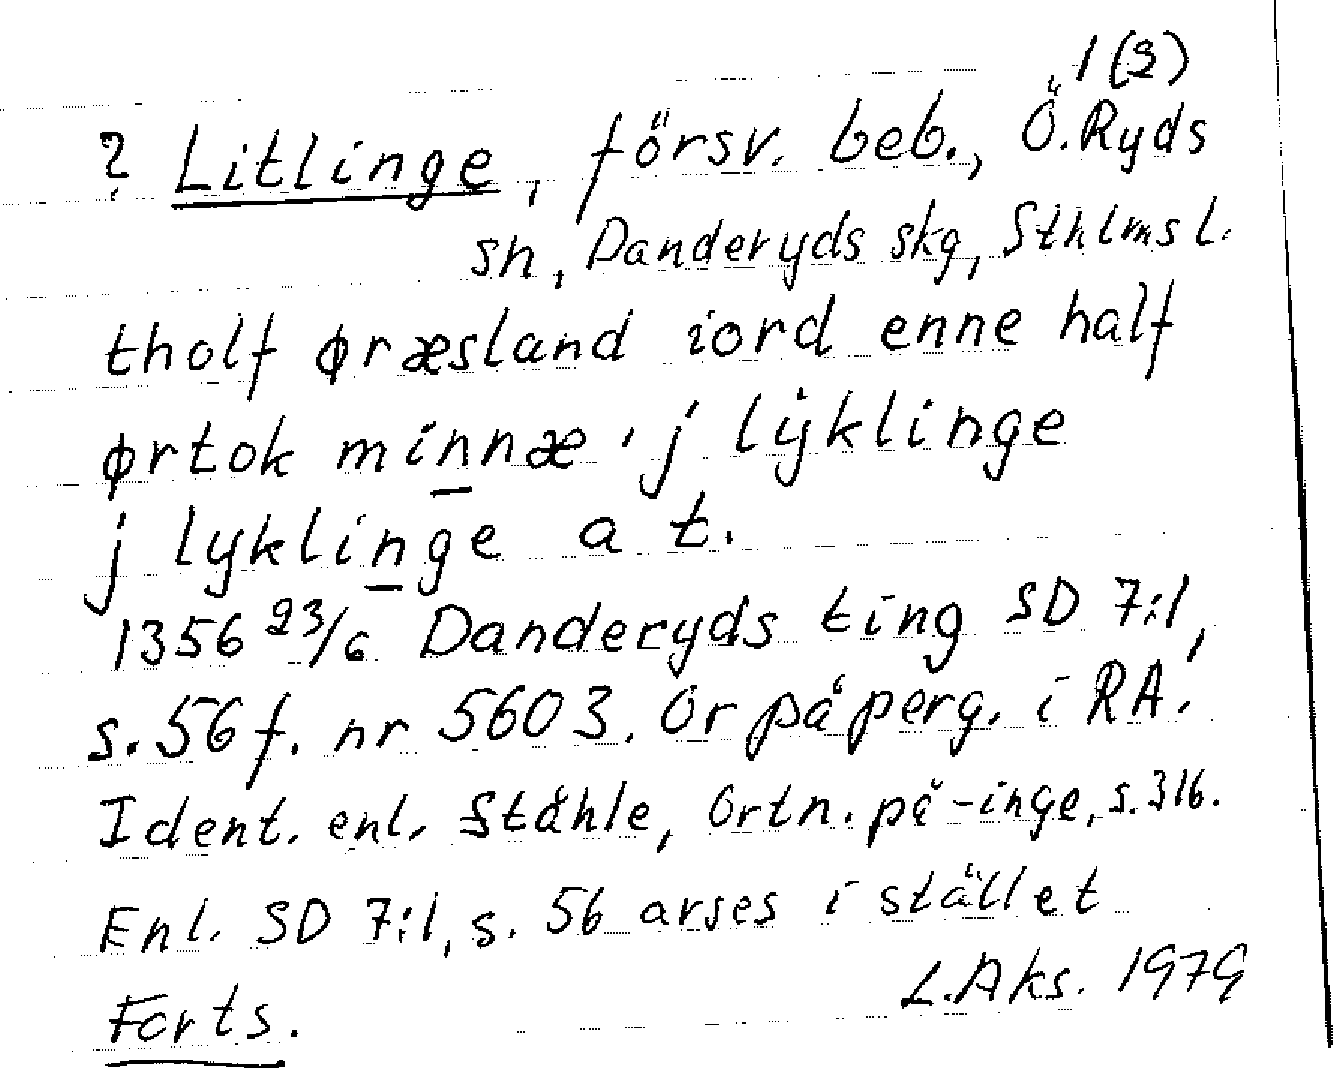 1(2)
? Litlinge, försv. beb., Ö. Ryds
sn, Danderyds skg, Sthlms l.
tholf øræsland iord enne half
ørtok minnæ ' j lÿklinge
j lyklinge a t.
1356 23/6 Danderyds ting SD 7:1,
s. 56 f. nr 5603. Or på perg. i RA.
Ident. enl. Ståhle, Ortn. på -inge, s. 316.
Enl. SD 7:1, s. 56 avses i stället
L. Aks. 1979
Forts.